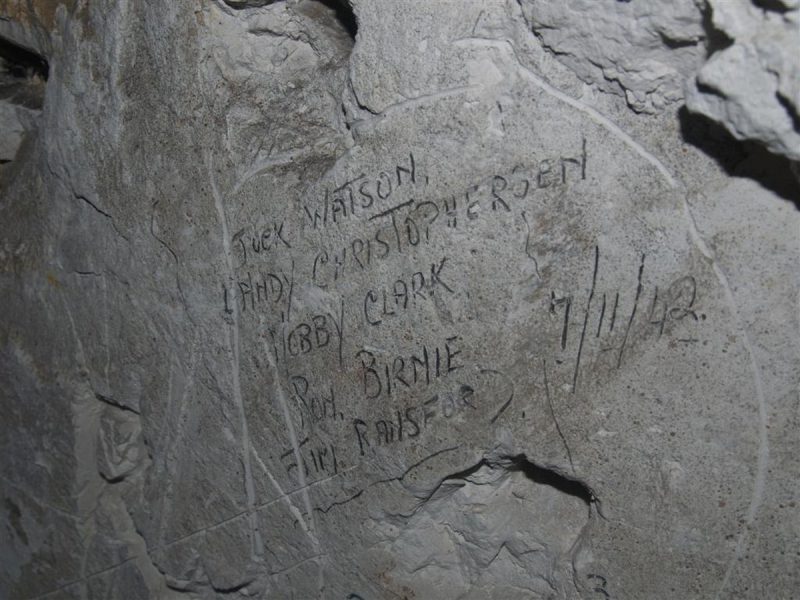 JOCK WATSON.
ANDY CHRISTOPHERSEN
NOBBY CLARK
RON. BIRNIE
JIM. RANSFORD.
7/11/42.